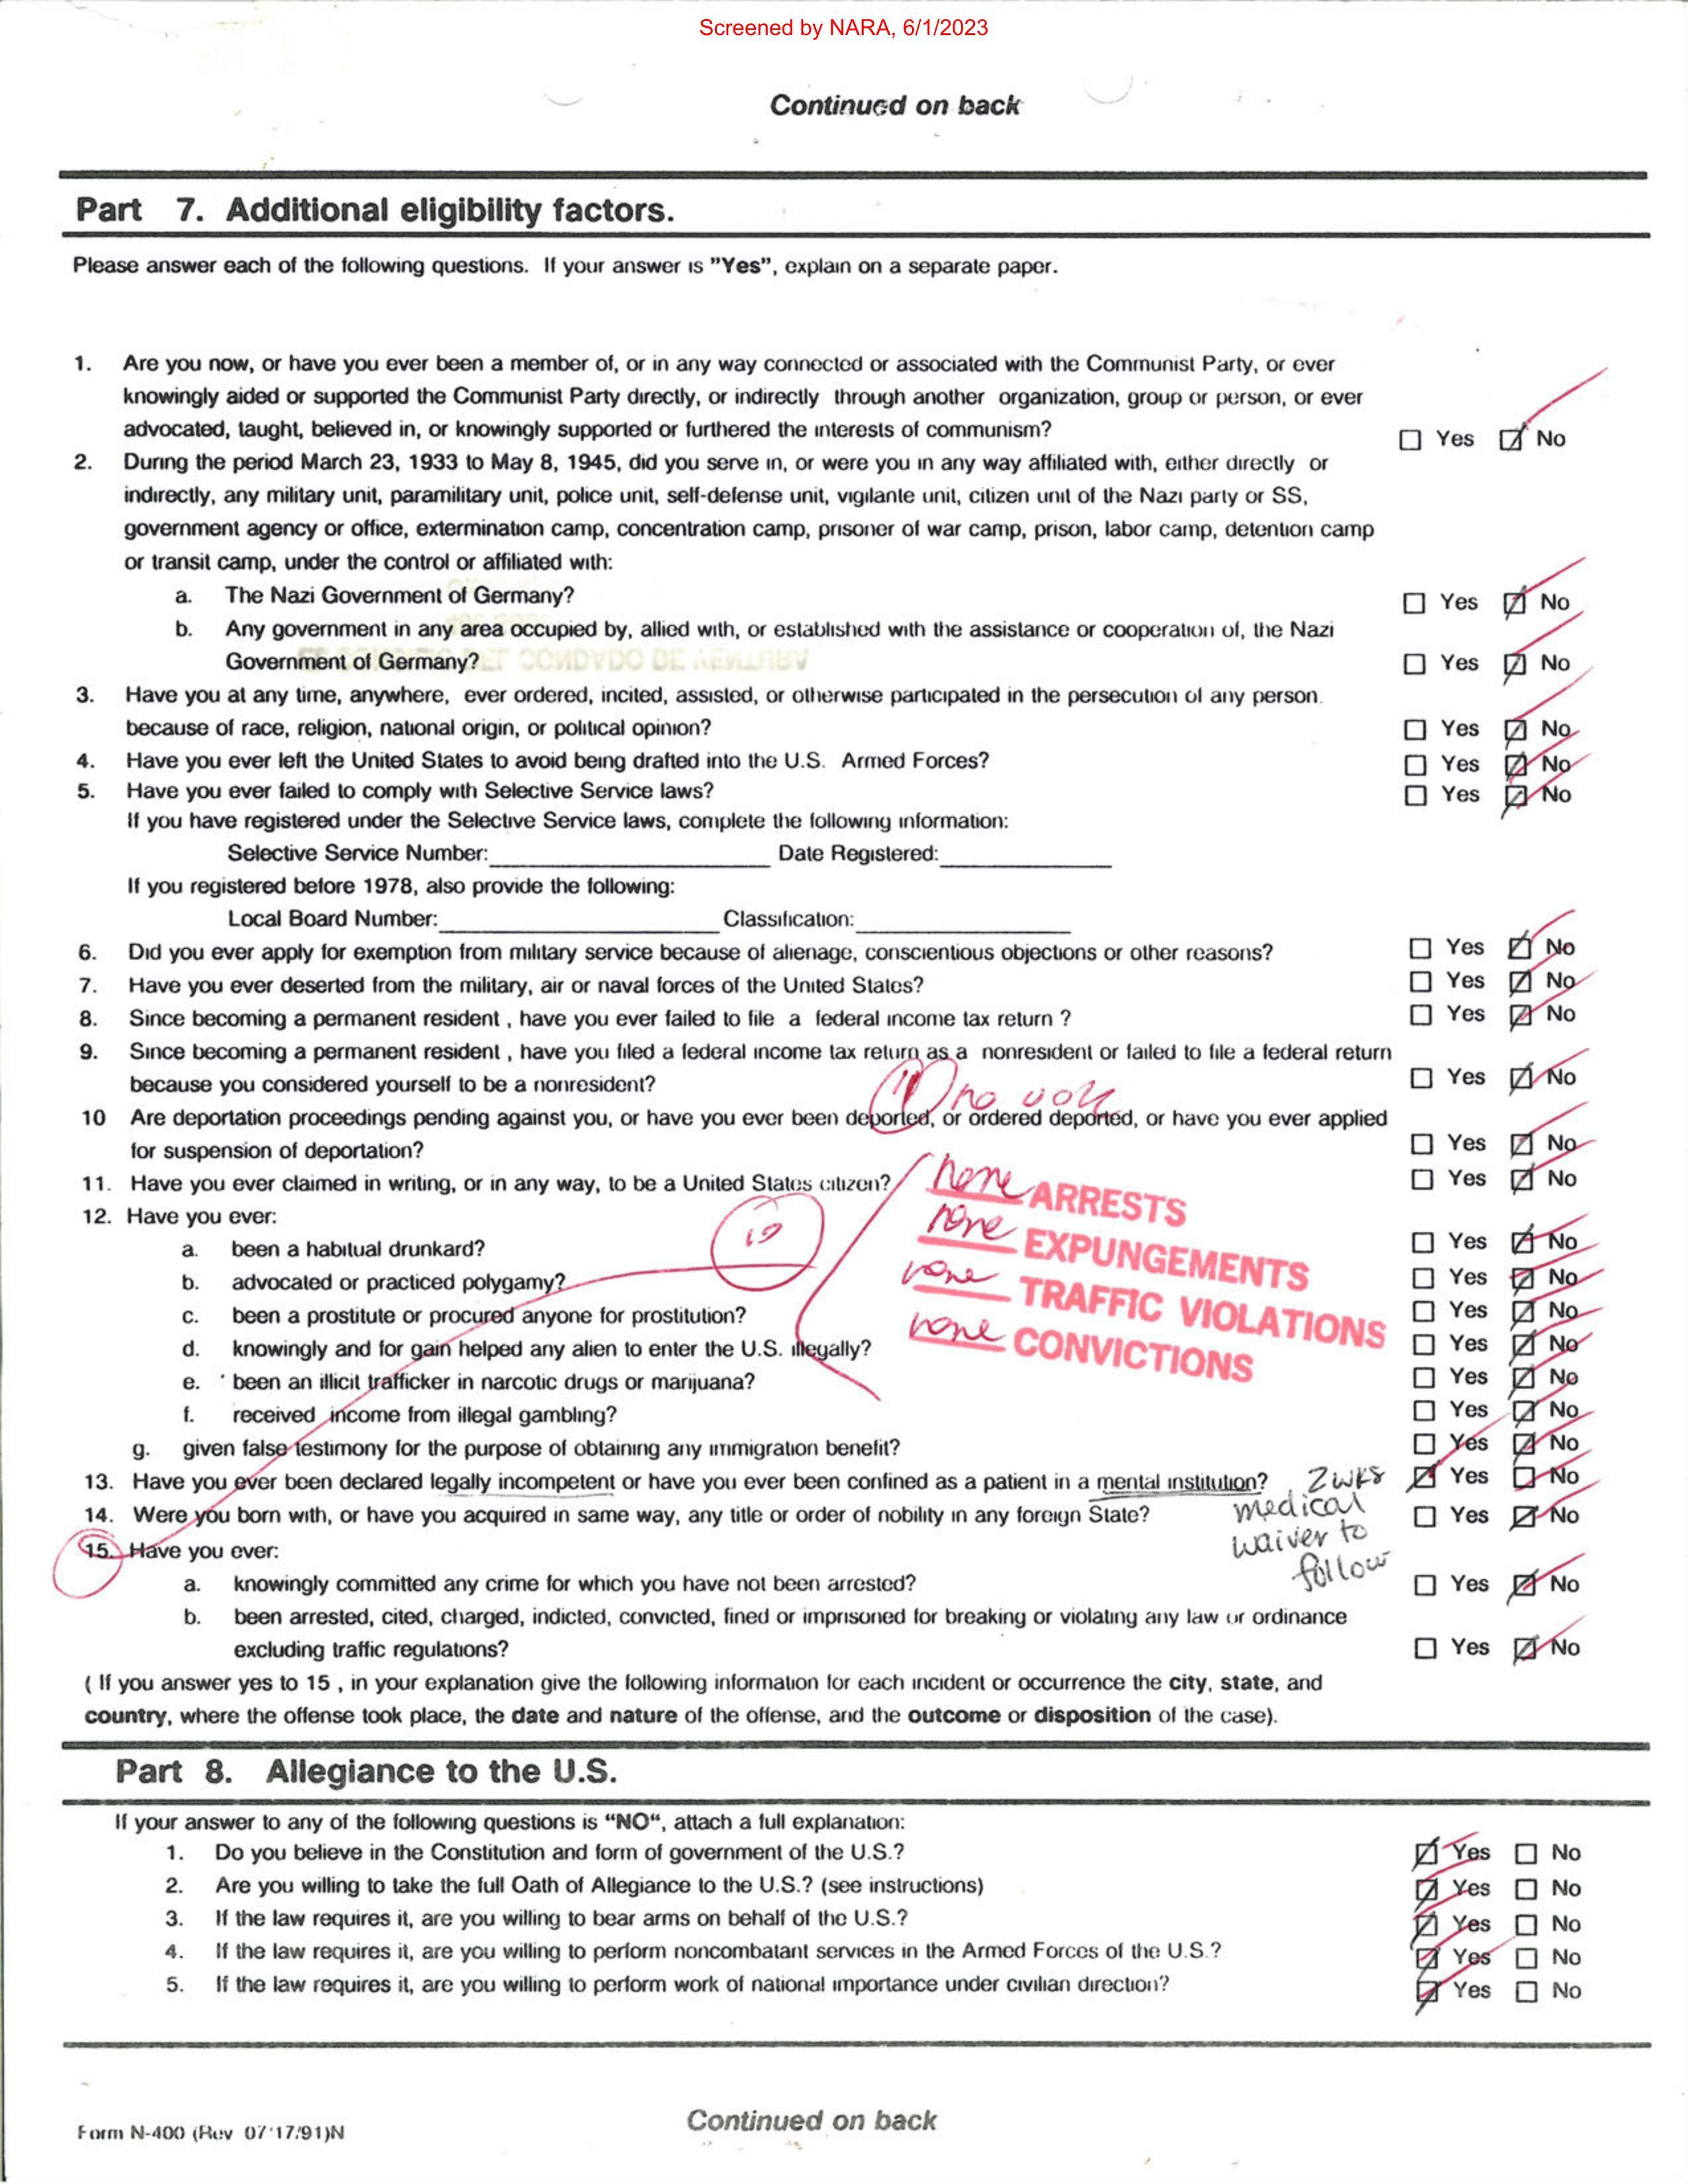 Screened by NARA, 6/1/2023
Continued on back
Part 7. Additional eligibility factors.
Please answer each of the following questions. If your answer is "Yes", explain on a separate paper.
1. Are you now, or have you ever been a member of, or in any way connected or associated with the Communist Party, or ever
knowingly aided or supported the Communist Party directly, or indirectly through another organization, group or person, or ever
advocated, taught, believed in, or knowingly supported or furthered the interests of communism? ☐ Yes ☑ No
2. During the period March 23, 1933 to May 8, 1945, did you serve in, or were you in any way affiliated with, either directly or
indirectly, any military unit, paramilitary unit, police unit, self-defense unit, vigilante unit, citizen unit of the Nazi party or SS,
government agency or office, extermination camp, concentration camp, prisoner of war camp, prison, labor camp, detention camp
or transit camp, under the control or affiliated with:
a. The Nazi Government of Germany? ☐ Yes ☑ No
b. Any government in any area occupied by, allied with, or established with the assistance or cooperation of, the Nazi
Government of Germany? ☐ Yes ☑ No
3. Have you at any time, anywhere, ever ordered, incited, assisted, or otherwise participated in the persecution of any person
because of race, religion, national origin, or political opinion? ☐ Yes ☑ No
4. Have you ever left the United States to avoid being drafted into the U.S. Armed Forces? ☐ Yes ☑ No
5. Have you ever failed to comply with Selective Service laws? ☐ Yes ☑ No
If you have registered under the Selective Service laws, complete the following information:
Selective Service Number: Date Registered:
If you registered before 1978, also provide the following:
Local Board Number: Classification:
6. Did you ever apply for exemption from military service because of alienage, conscientious objections or other reasons? ☐ Yes ☑ No
7. Have you ever deserted from the military, air or naval forces of the United States? ☐ Yes ☑ No
8. Since becoming a permanent resident , have you ever failed to file a federal income tax return ? ☐ Yes ☑ No
9. Since becoming a permanent resident , have you filed a federal income tax return as a nonresident or failed to file a federal return
because you considered yourself to be a nonresident? ☐ Yes ☑ No
11 no vote
10 Are deportation proceedings pending against you, or have you ever been deported, or ordered deported, or have you ever applied
for suspension of deportation? ☐ Yes ☑ No
11. Have you ever claimed in writing, or in any way, to be a United States citizen? ☐ Yes ☑ No
none ARRESTS
none EXPUNGEMENTS
none TRAFFIC VIOLATIONS
none CONVICTIONS
12. Have you ever:
a. been a habitual drunkard? ☐ Yes ☑ No
b. advocated or practiced polygamy? ☐ Yes ☑ No
c. been a prostitute or procured anyone for prostitution? ☐ Yes ☑ No
d. knowingly and for gain helped any alien to enter the U.S. illegally? ☐ Yes ☑ No
e. been an illicit trafficker in narcotic drugs or marijuana? ☐ Yes ☑ No
f. received income from illegal gambling? ☐ Yes ☑ No
g. given false testimony for the purpose of obtaining any immigration benefit? ☐ Yes ☑ No
13. Have you ever been declared legally incompetent or have you ever been confined as a patient in a mental institution? 2 wks ☑ Yes ☐ No
medical
waiver to
follow
14. Were you born with, or have you acquired in same way, any title or order of nobility in any foreign State? ☐ Yes ☑ No
15. Have you ever:
a. knowingly committed any crime for which you have not been arrested? ☐ Yes ☑ No
b. been arrested, cited, charged, indicted, convicted, fined or imprisoned for breaking or violating any law or ordinance
excluding traffic regulations? ☐ Yes ☑ No
( If you answer yes to 15 , in your explanation give the following information for each incident or occurrence the city, state, and
country, where the offense took place, the date and nature of the offense, and the outcome or disposition of the case).
Part 8. Allegiance to the U.S.
If your answer to any of the following questions is "NO", attach a full explanation:
1. Do you believe in the Constitution and form of government of the U.S.? ☑ Yes ☐ No
2. Are you willing to take the full Oath of Allegiance to the U.S.? (see instructions) ☑ Yes ☐ No
3. If the law requires it, are you willing to bear arms on behalf of the U.S.? ☑ Yes ☐ No
4. If the law requires it, are you willing to perform noncombatant services in the Armed Forces of the U.S.? ☑ Yes ☐ No
5. If the law requires it, are you willing to perform work of national importance under civilian direction? ☑ Yes ☐ No
Form N-400 (Rev 07/17/91)N
Continued on back